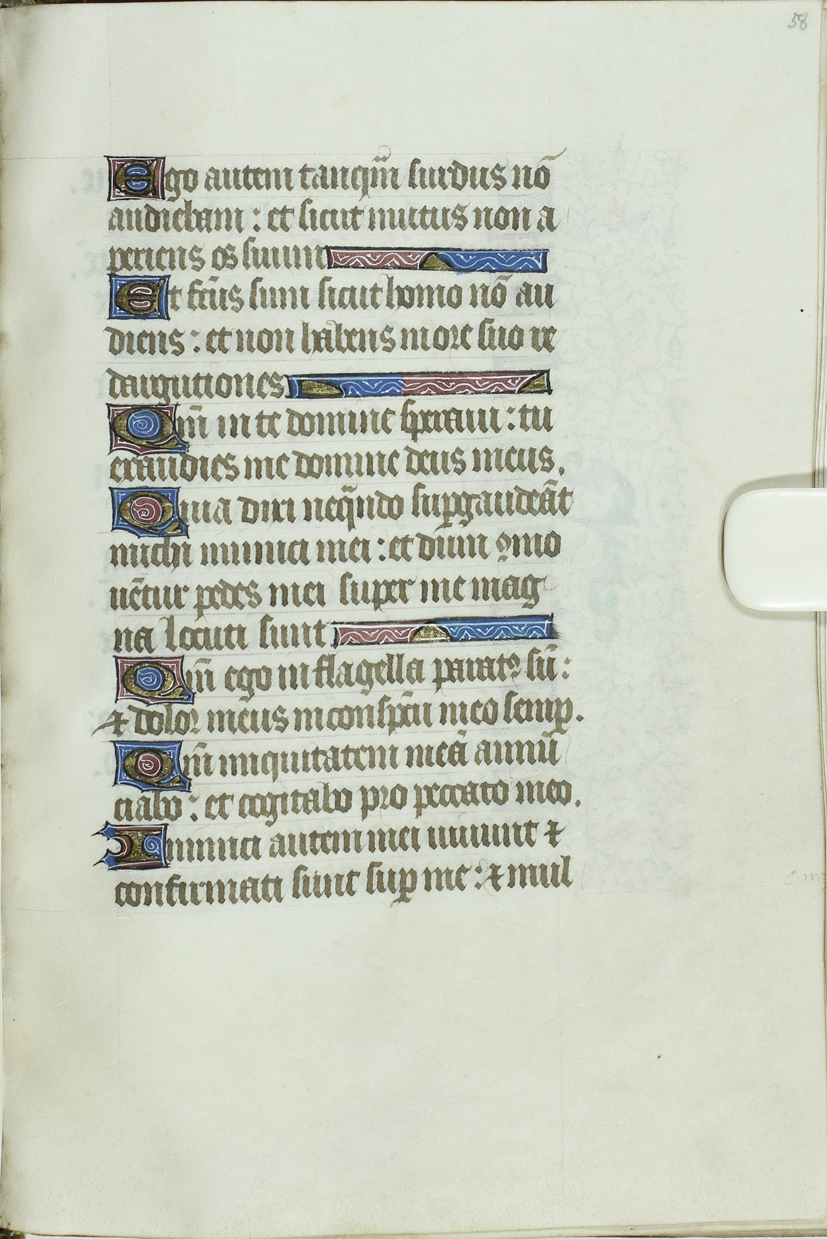 58
Ego autem tanqm̄ surdus nō
audiebam : et sicut mutus non a
periens os suum
Et fc̄us sum sicut homo nō au
diens : et non habens in ore suo re
dargutiones
Qm̄ in te domine speraui : tu
exaudies me domine deus meus.
Quia dixi neqn̄do sup̱gaudeāt
michi inimici mei : et dūm ꝯmo
uētur pedes mei super me mag
na locuti sunt
Qm̄ ego in flagella paratꝰ sū :
⁊ dolor meus in conspc̄u meo semp̱.
Qm̄ iniquitatem meā annū
ciabo : et cogitabo pro peccato meo.
Inimici autem mei uiuunt ⁊
confirmati sunt sup̱ me : ⁊ mul